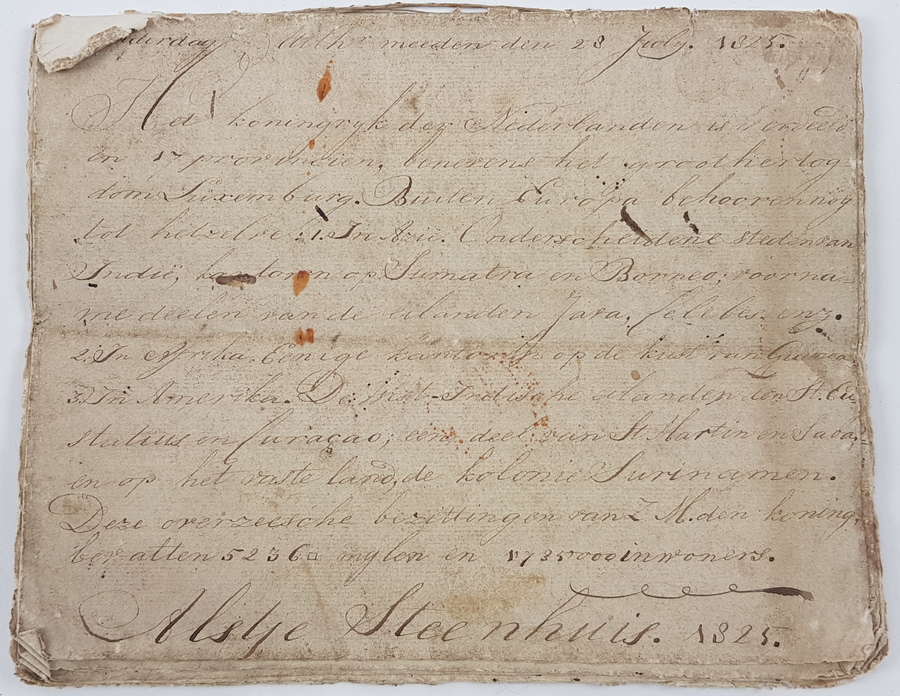 Uithrmeeden den 28 July. 1825.
Het koningryk der Nederlanden is verdeeld
in 17 provincien, benevens het groothertog
dom Luxemburg. Buiten Europa behooren nog
tot hetzelve: 1. In Azië. Onderscheidene steden van
Indië, kantoren op Sumatra en Borneo; voorna=
me deelen van de eilanden Java, Celebes. enz.
2. In Afrika. Eenige kantoren op de kust van Guinea
3. In Amerika. De West-Indische eilanden von St. Eu
statius en Curaçao; een deel van St Martin en Saba,
en op het vaste land, de kolonie Surinamen.
Deze overzeesche bezittingen van Z M. den koning,
bevatten 5236 □ mylen en 1735000 inwoners.
Alstje Steenhuis. 1825.